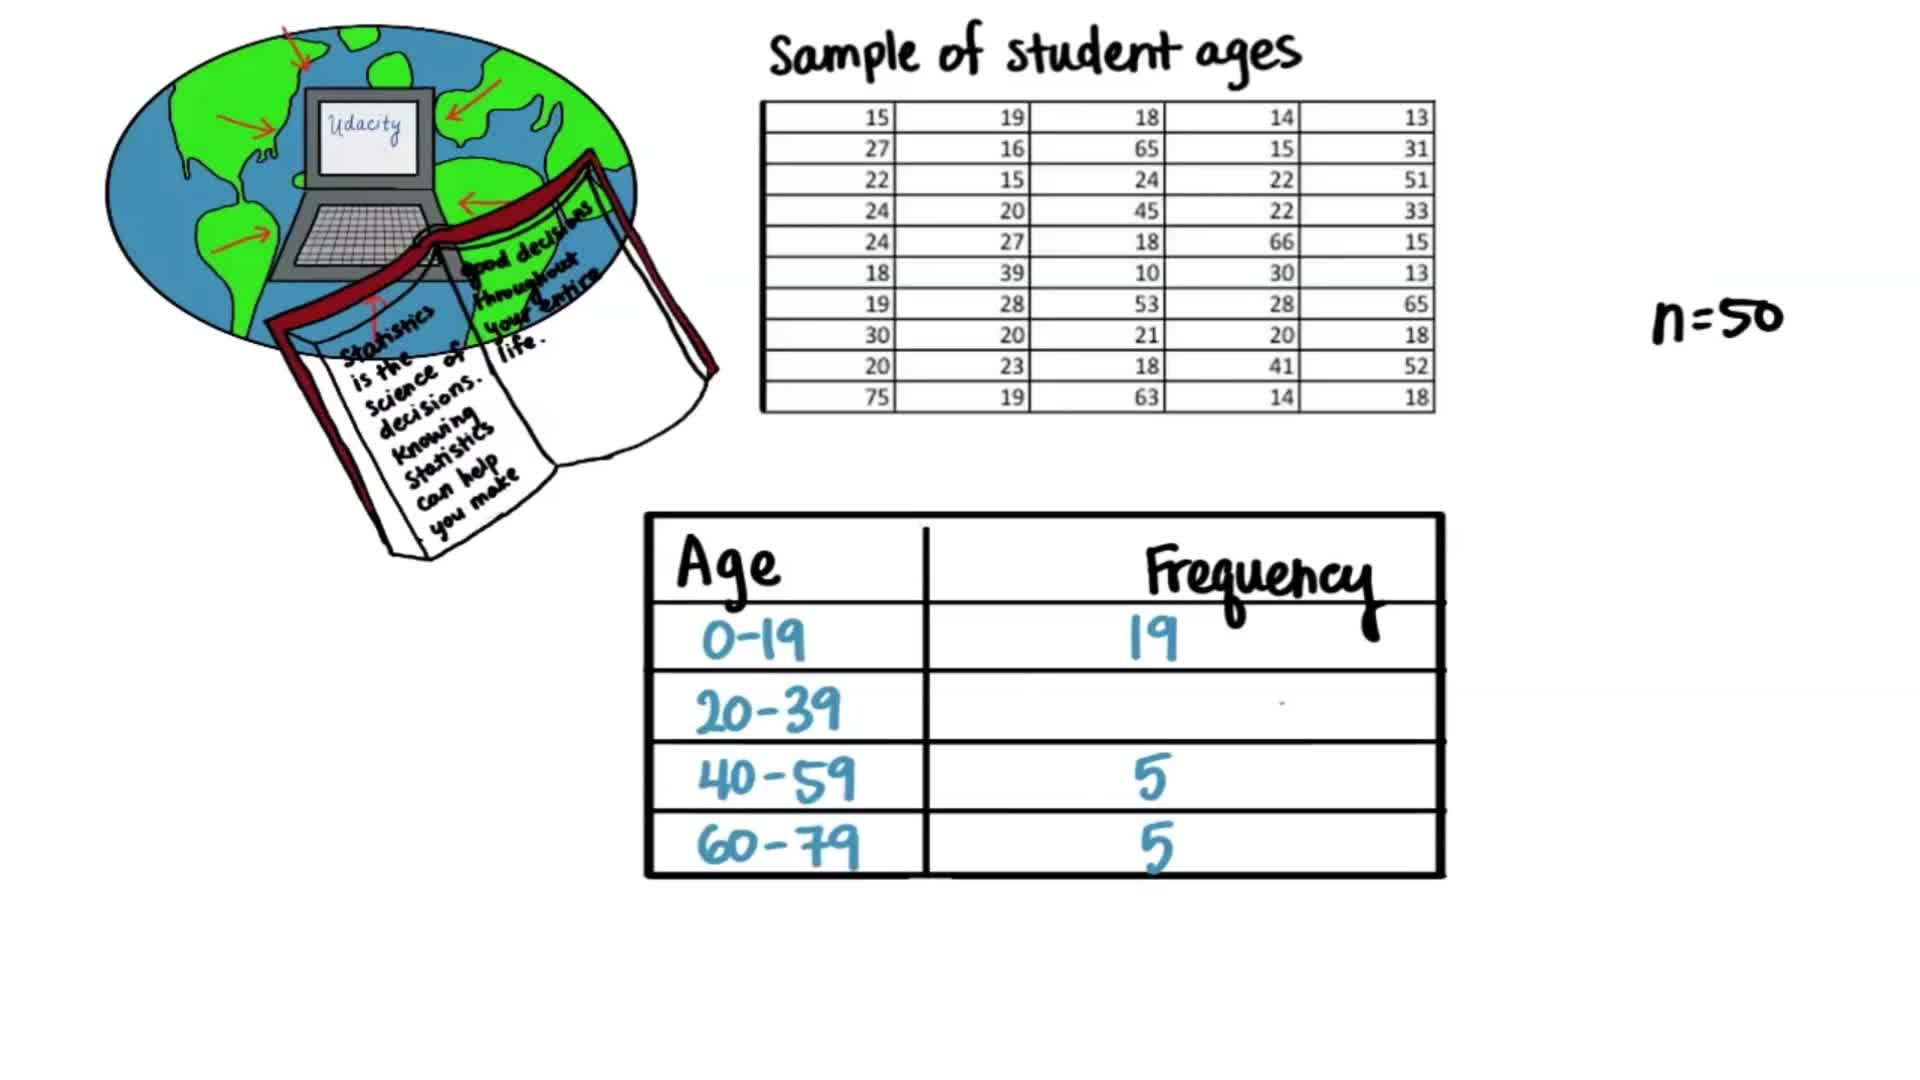 Udacity
Statistics
is the
science of
decisions.
Knowing
Statistics
can help
you make
good decisions
throughout
your entire
life.
Sample of student ages
15 19 18 14 13
27 16 65 15 31
22 15 24 22 51
24 20 45 22 33
24 27 18 66 15
18 39 10 30 13
19 28 53 28 65
30 20 21 20 18
20 23 18 41 52
75 19 63 14 18
n=50
Age Frequency
0-19 19
20-39
40-59 5
60-79 5